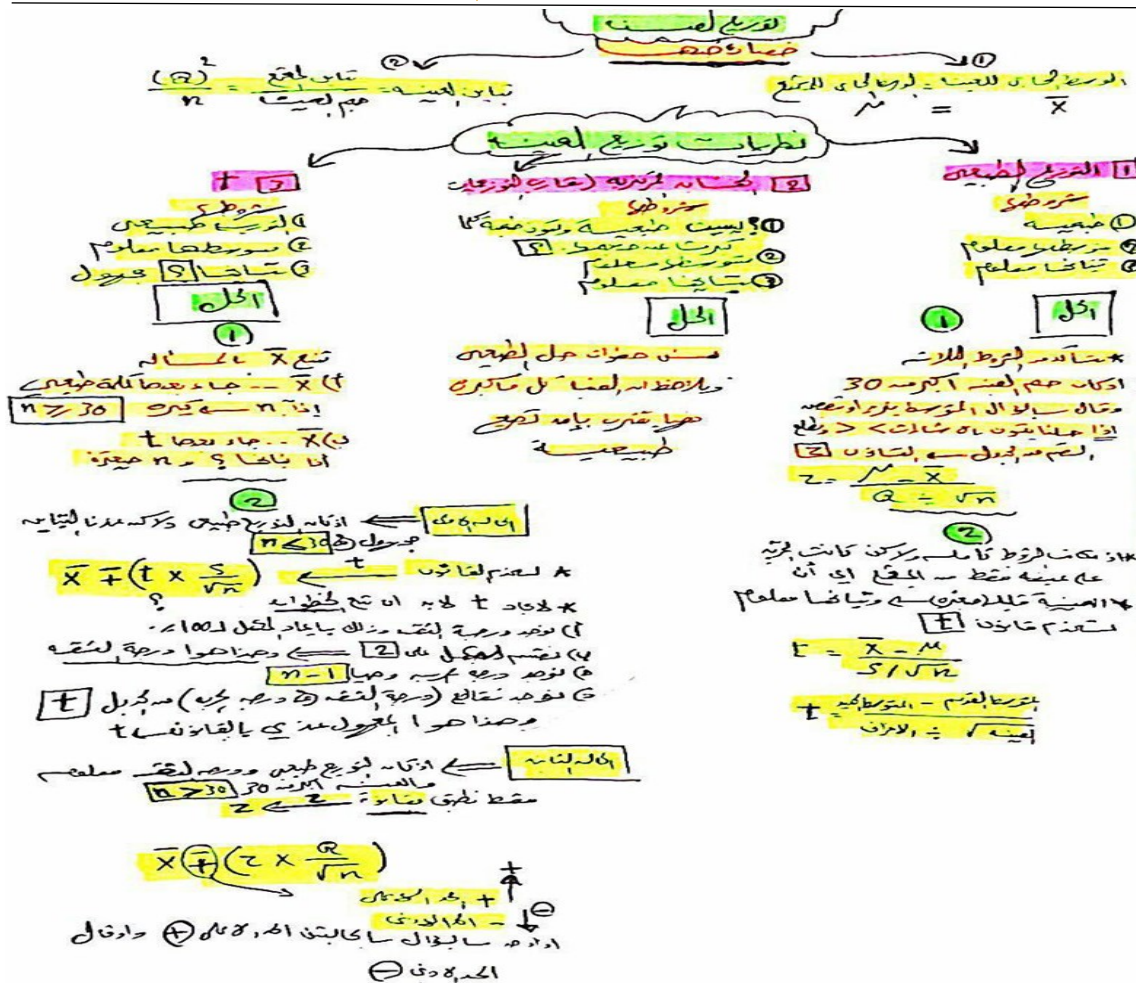 توزيع العينة
خصائصها
①
الوسط الحسابي للعينة = الوسط الحسابي للمجتمع
μ = X̄
②
تباين العينة = تباين المجتمع / حجم العينة = (Q)² / n
نظريات توزيع العينة
1 التوزيع الطبيعي
شروطها
① طبيعية
② متوسطها معلوم
③ تباينها معلوم
الحل
①
* نتأكد من الشروط الثلاثة
اذا كان حجم العينة اكبر من 30
وقال سالؤال المتوسط يزيد او
القيم من الجدول
z = μ - X̄ / Q ÷ √n
②
كاملة ولاكن كانت
على عينة فقط من المجتمع اي أن
* العينة قليلة (صغيره) وتباينها معلوم
نستخدم قانون t
t = X̄ - μ / S/√n
t = المتوسط القديم - المتوسط الجديد
العينة √ ÷ الانحراف
2 الحسابية المركزية (تقارب التوزيعات)
شروطها
① ليست طبيعية وتؤول كلما
كبرت
② متوسطها معلوم
③ تباينها معلوم
الحل
نفس خطوات حل الطبيعي
ويلاحظ ان العينة كل ماكبرة
تقترب بأن تصبح
طبيعية
3 t
شروطها
① التوزيع طبيعي
② متوسطها معلوم
③ تباينها ؟ مجهول
الحل
①
نتبع X̄ بالمسألة
أ) X̄ ... جاء بعدها كلمة طبيعي
إذاً n كبيرة n ≥ 30
ب) X̄ ... جاء بعدها t
اذا تباينها ؟ و n صغيرة
②
الحالة الاولى ⟸ اذا كان التوزيع طبيعي ولاكن عندنا التباين
مجهول n ≤ 30
* نستخدم القانون t ← X̄ ∓ (t × S/√n)
؟
* لايجاد t لابد ان نتبع الخطوات
أ) نوجد درجة الثقة وذلك بإيجاد المكمل لـ 100٪
ب) نقسم المكمل على 2 ⟸ وهذا هوا درجة الثقة
نوجد درجة حرية وهيا n - 1
نوجد تقاطع (درجة الثقة درجة حرية) من الجدول t
وهذا هوا المجهول عندي بالقانون t
الحالة الثانية ⟸ اذا كان التوزيع طبيعي ودرجة الثقة معلوم
والعينة اكبر من 30 n > 30
فقط نطبق قانون z ← z
X̄ ∓ (z × Q/√n)
+ الحد الاعلى
- الحد الادنى
+
⊖
سالسؤال الحد الاعلى ⊕ واذا قال
الحد الادنى ⊖